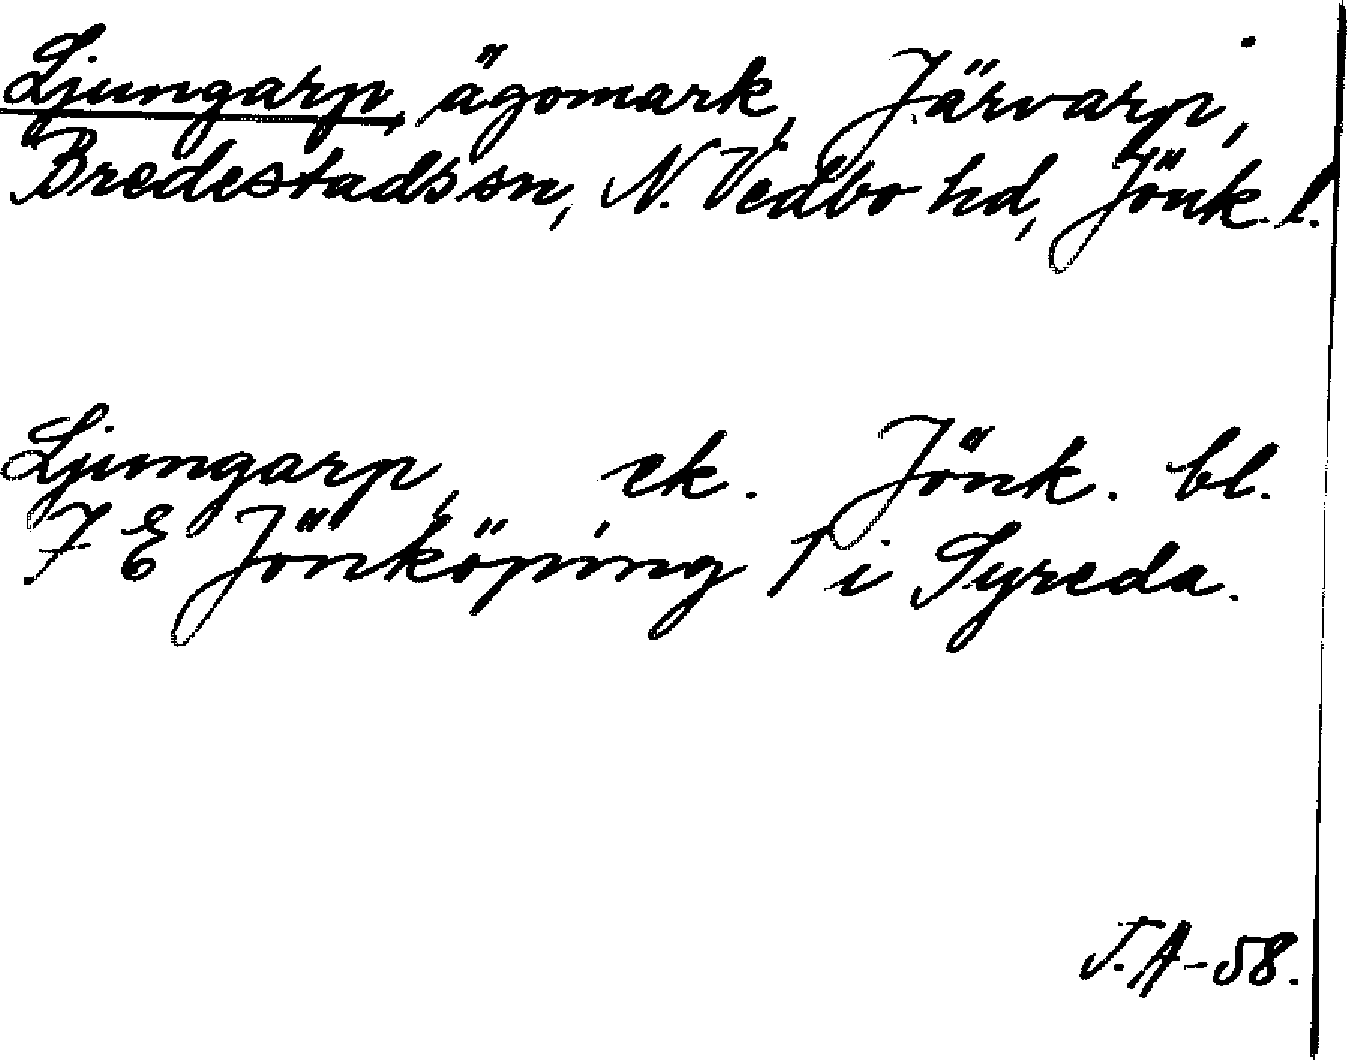 Ljungarp, ägomark, Järvarp,
Bredestads sn, N. Vedbo hd, Jönk. l.
Ljungarp, ek. Jönk. bl.
7 E Jönköping 1 i Syreda.
J.A-58.